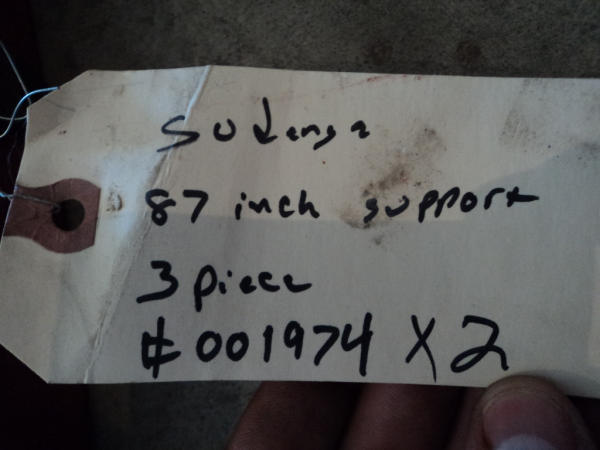 Sudenga
87 inch support
3 piece
#001974 X2